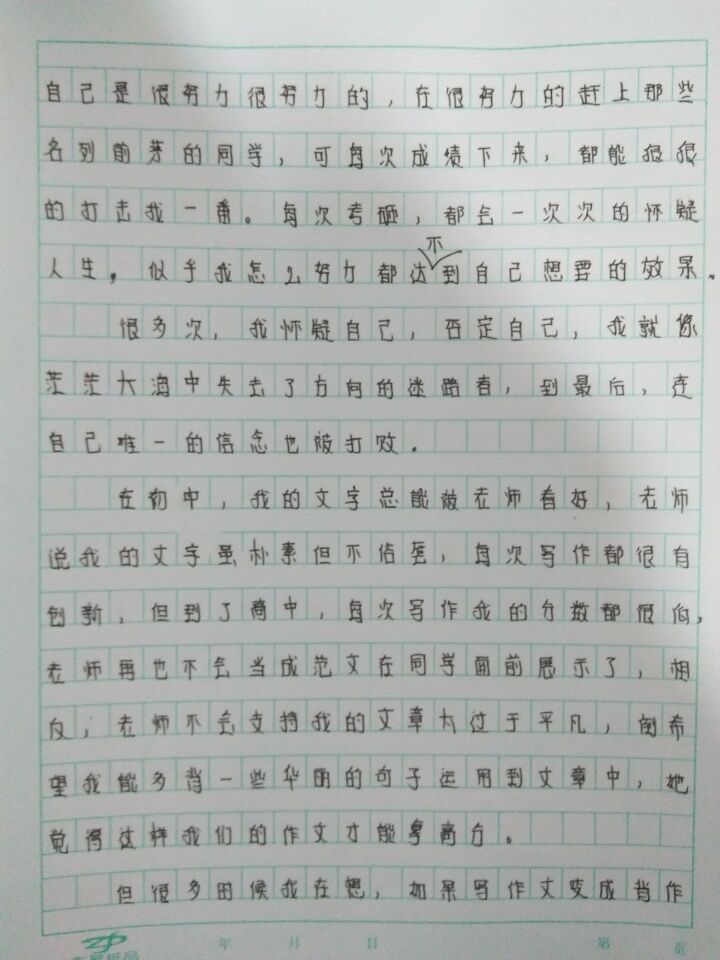 自己是很努力很努力的，在很努力的赶上那些
名列前茅的同学，可每次成绩下来，都能狠狠
的打击我一番。每次考砸，都会一次次的怀疑
人生，似乎我怎么努力都达不到自己想要的效果。
很多次，我怀疑自己，否定自己，我就像
茫茫大海中失去了方向的迷路者，到最后，连
自己唯一的信念也被打败。
在初中，我的文字总能被老师看好，老师
说我的文字虽朴素但不俗套，每次写作都很有
创新，但到了高中，每次写作我的分数都很低，
老师再也不会当成范文在同学面前展示了，相
反，老师不会支持我的文章太过于平凡，倒希
望我能多背一些华丽的句子运用到文章中，她
觉得这样我们的作文才能拿高分。
但很多时候我在想，如果写作文变成背作
年 月 日 第 页